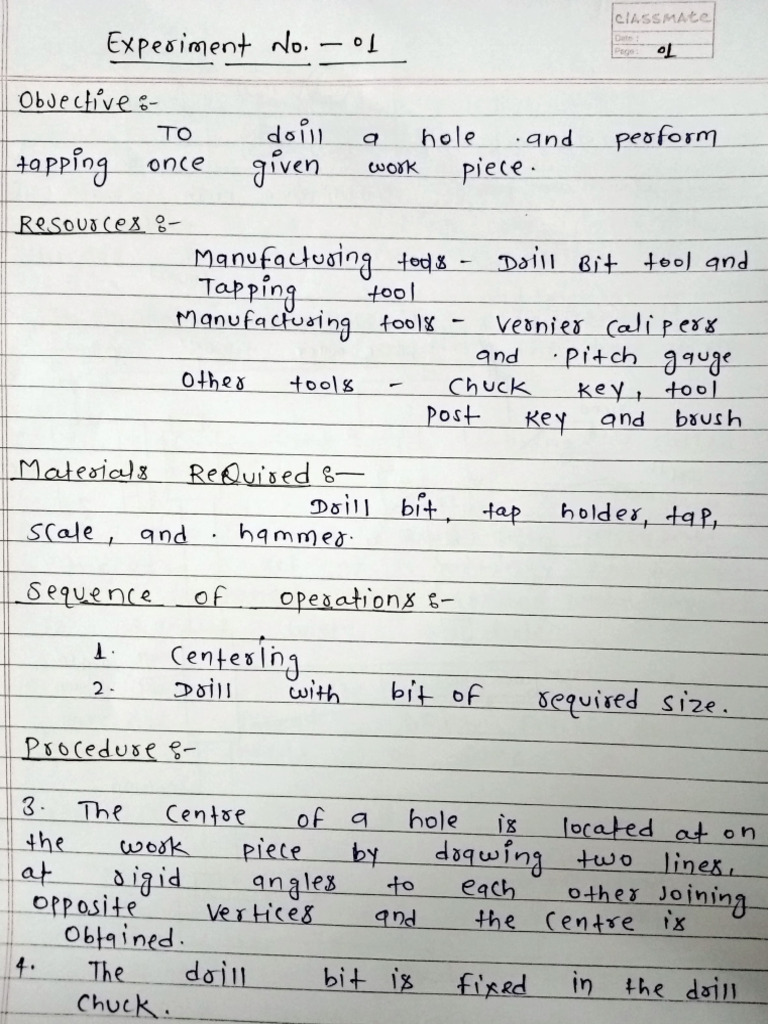 classmate
Date :
Page : 01
Experiment No. - 01
Objective :-
To drill a hole . and perform
tapping once given work piece.
Resources :-
Manufacturing tools - Drill Bit tool and
Tapping tool
Manufacturing tools - Vernier Calipers
and . Pitch gauge
Other tools - Chuck Key, tool
Post Key and brush
Materials Required :-
Drill bit, tap holder, tap,
Scale, and . hammer.
Sequence of operations :-
1. Centering
2. Drill with bit of required size.
Procedure :-
3. The Centre of a hole is located at on
the work piece by drawing two lines,
at rigid angles to each other Joining
opposite Vertices and the Centre is
Obtained.
4. The drill bit is fixed in the drill
Chuck.